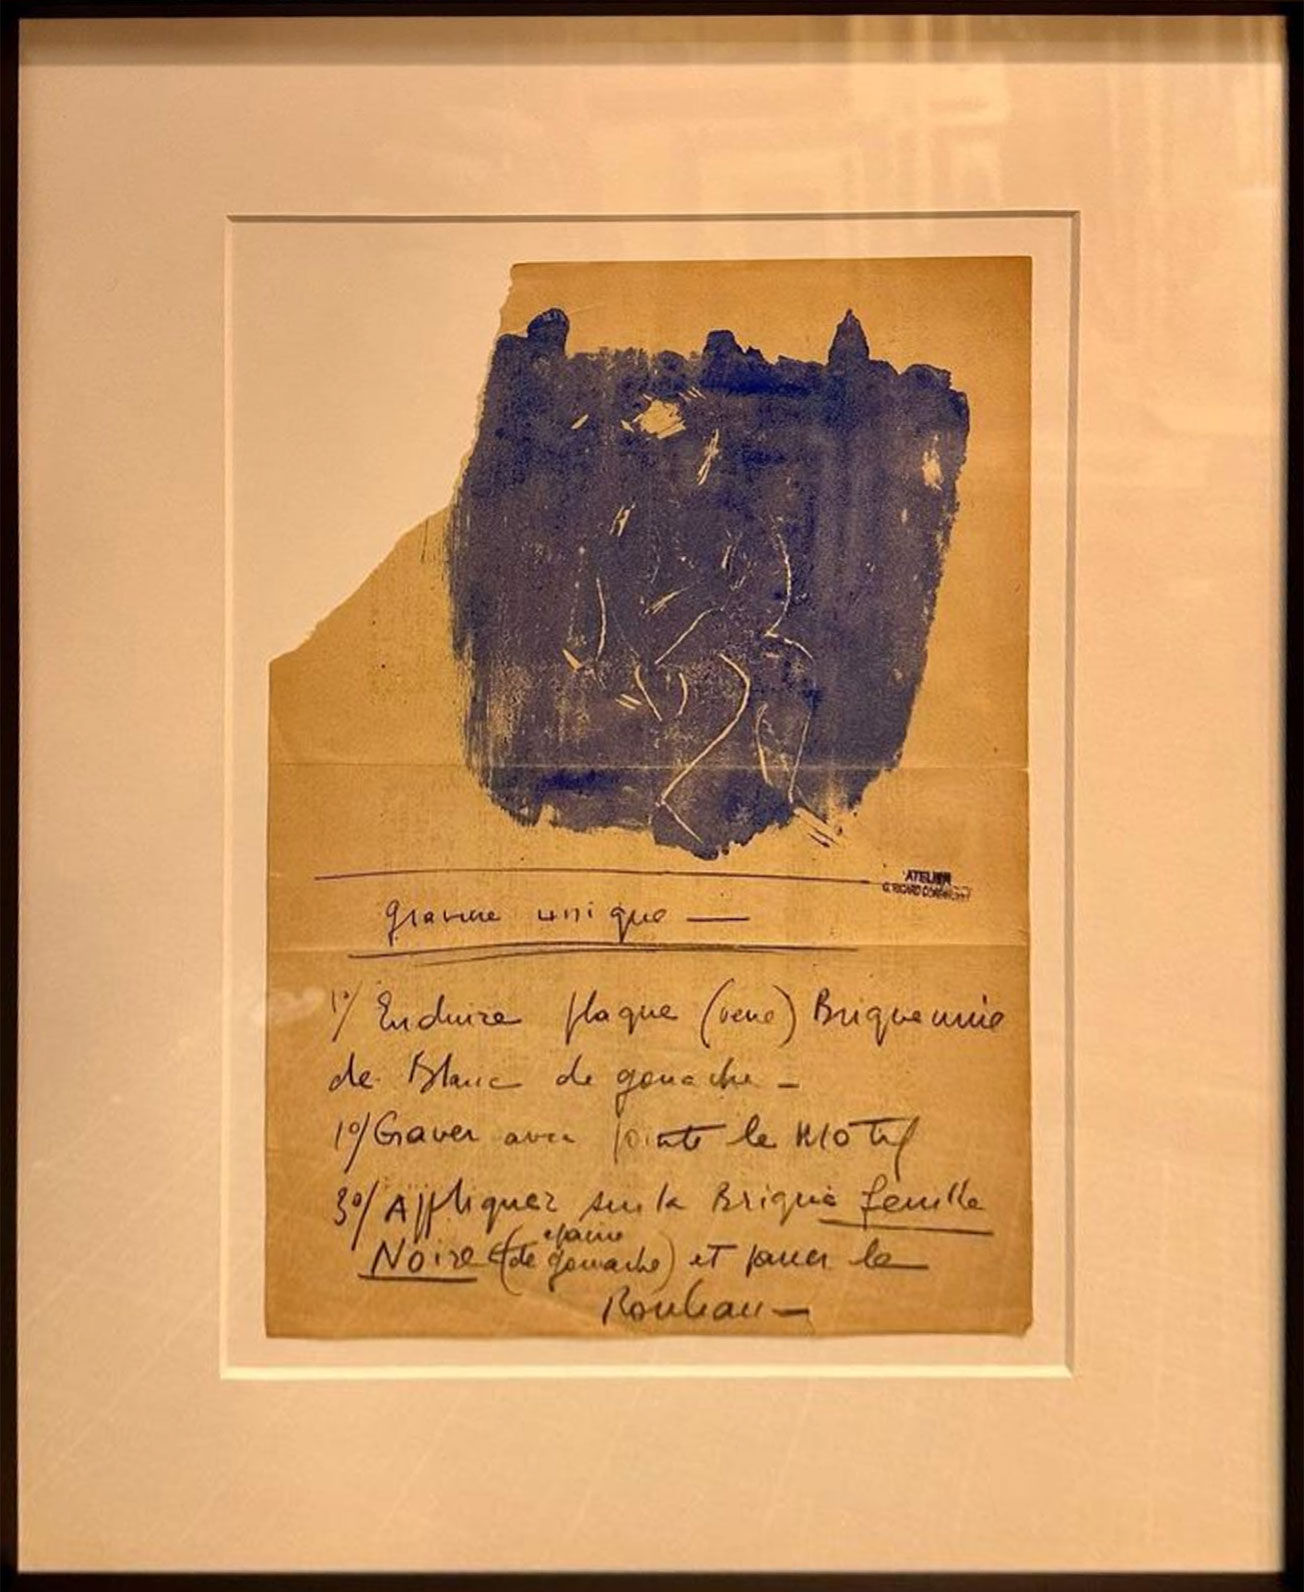 ATELIER
G. RICARD CORDINGLEY
gravure unique —
1°/ Enduire plaque (verre) Brique unie
de Blanc de gouache —
1°/ Graver avec pointe le MOTif
3°/ Appliquer sur la Brique feuille
Noire (de gouache) et passer le
Rouleau —